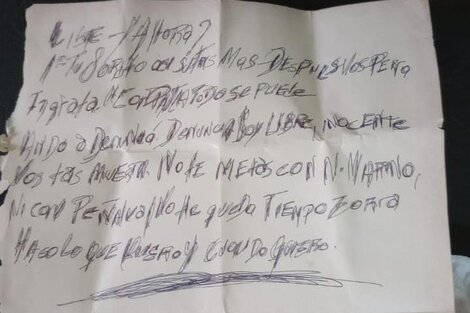 LIBRE - Y AHORA?
tu sobrito Mas DESPUES VOS PERRA
Ingrata TODO SE PUEDE
ANDÁ a DENUNCIÁ DENUNCIA SOY LIBRE, INOCENTE
VOS estas MUERTA NO te METAS CON N. MARINO,
NI CON PEÑALVA NO te queda TIEMPO ZORRA
HAGO LO QUE QUIERO Y CUANDO QUIERO.